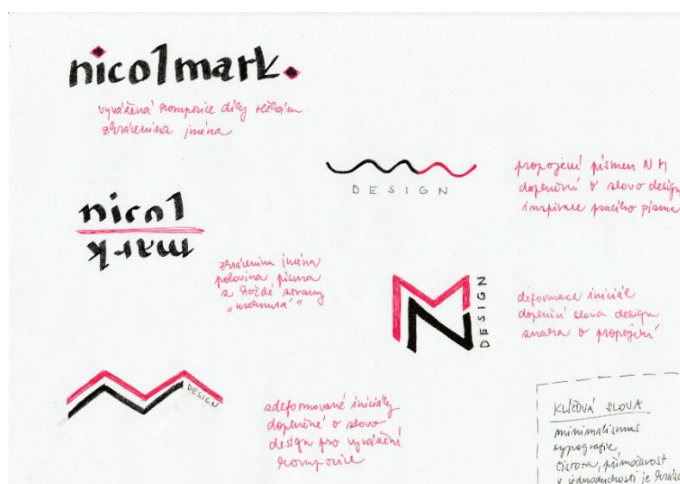 nicolmark.
vyvážená kompozice díky tečkám
zkrácenina jména
DESIGN
propojení písmen N M
doplnění o slovo design
inspirace psacího písma
nicol
mark
zkrácenina jména
polovina písma
z každé strany
DESIGN
deformace iniciál
doplnění slova design
snaha o propojení
DESIGN
zdeformované iniciály
doplněné o slovo
design pro vyvážení
kompozice
KLÍČOVÁ SLOVA
minimalismus
typografie
čistota, přímočarost
v jednoduchosti je krása